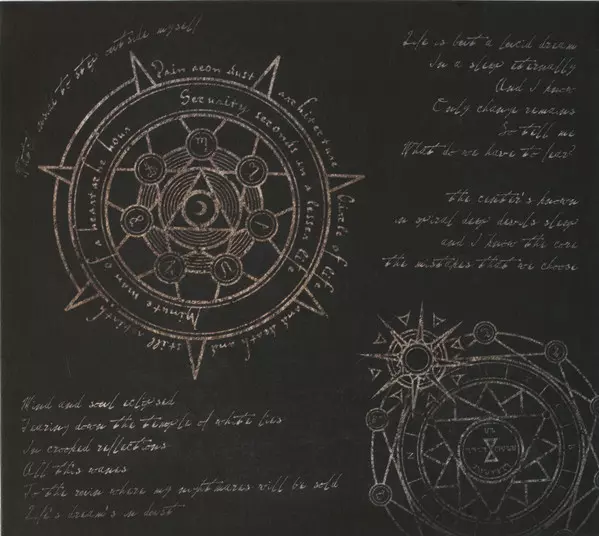 outside myself
Pain aeon dust architecture
Circle of life and death and still a birth
Security seconds in a lesser life
Minute man of a heartache hour
Life is but a lucid dream
In a sleep eternally
And I know
Only change remains
So tell me
What do we have to fear?
the center's known
in spiral deep devils sleep
and I know the core
the mistakes that we choose
Mind and soul eclipsed
Tearing down the temple of white lies
In crooked reflections
All this wanes
To the ruin where my nightmares will be sold
Life's dream's in dust